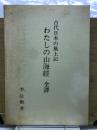 古代日本の風土記
わたしの山海経 全譯